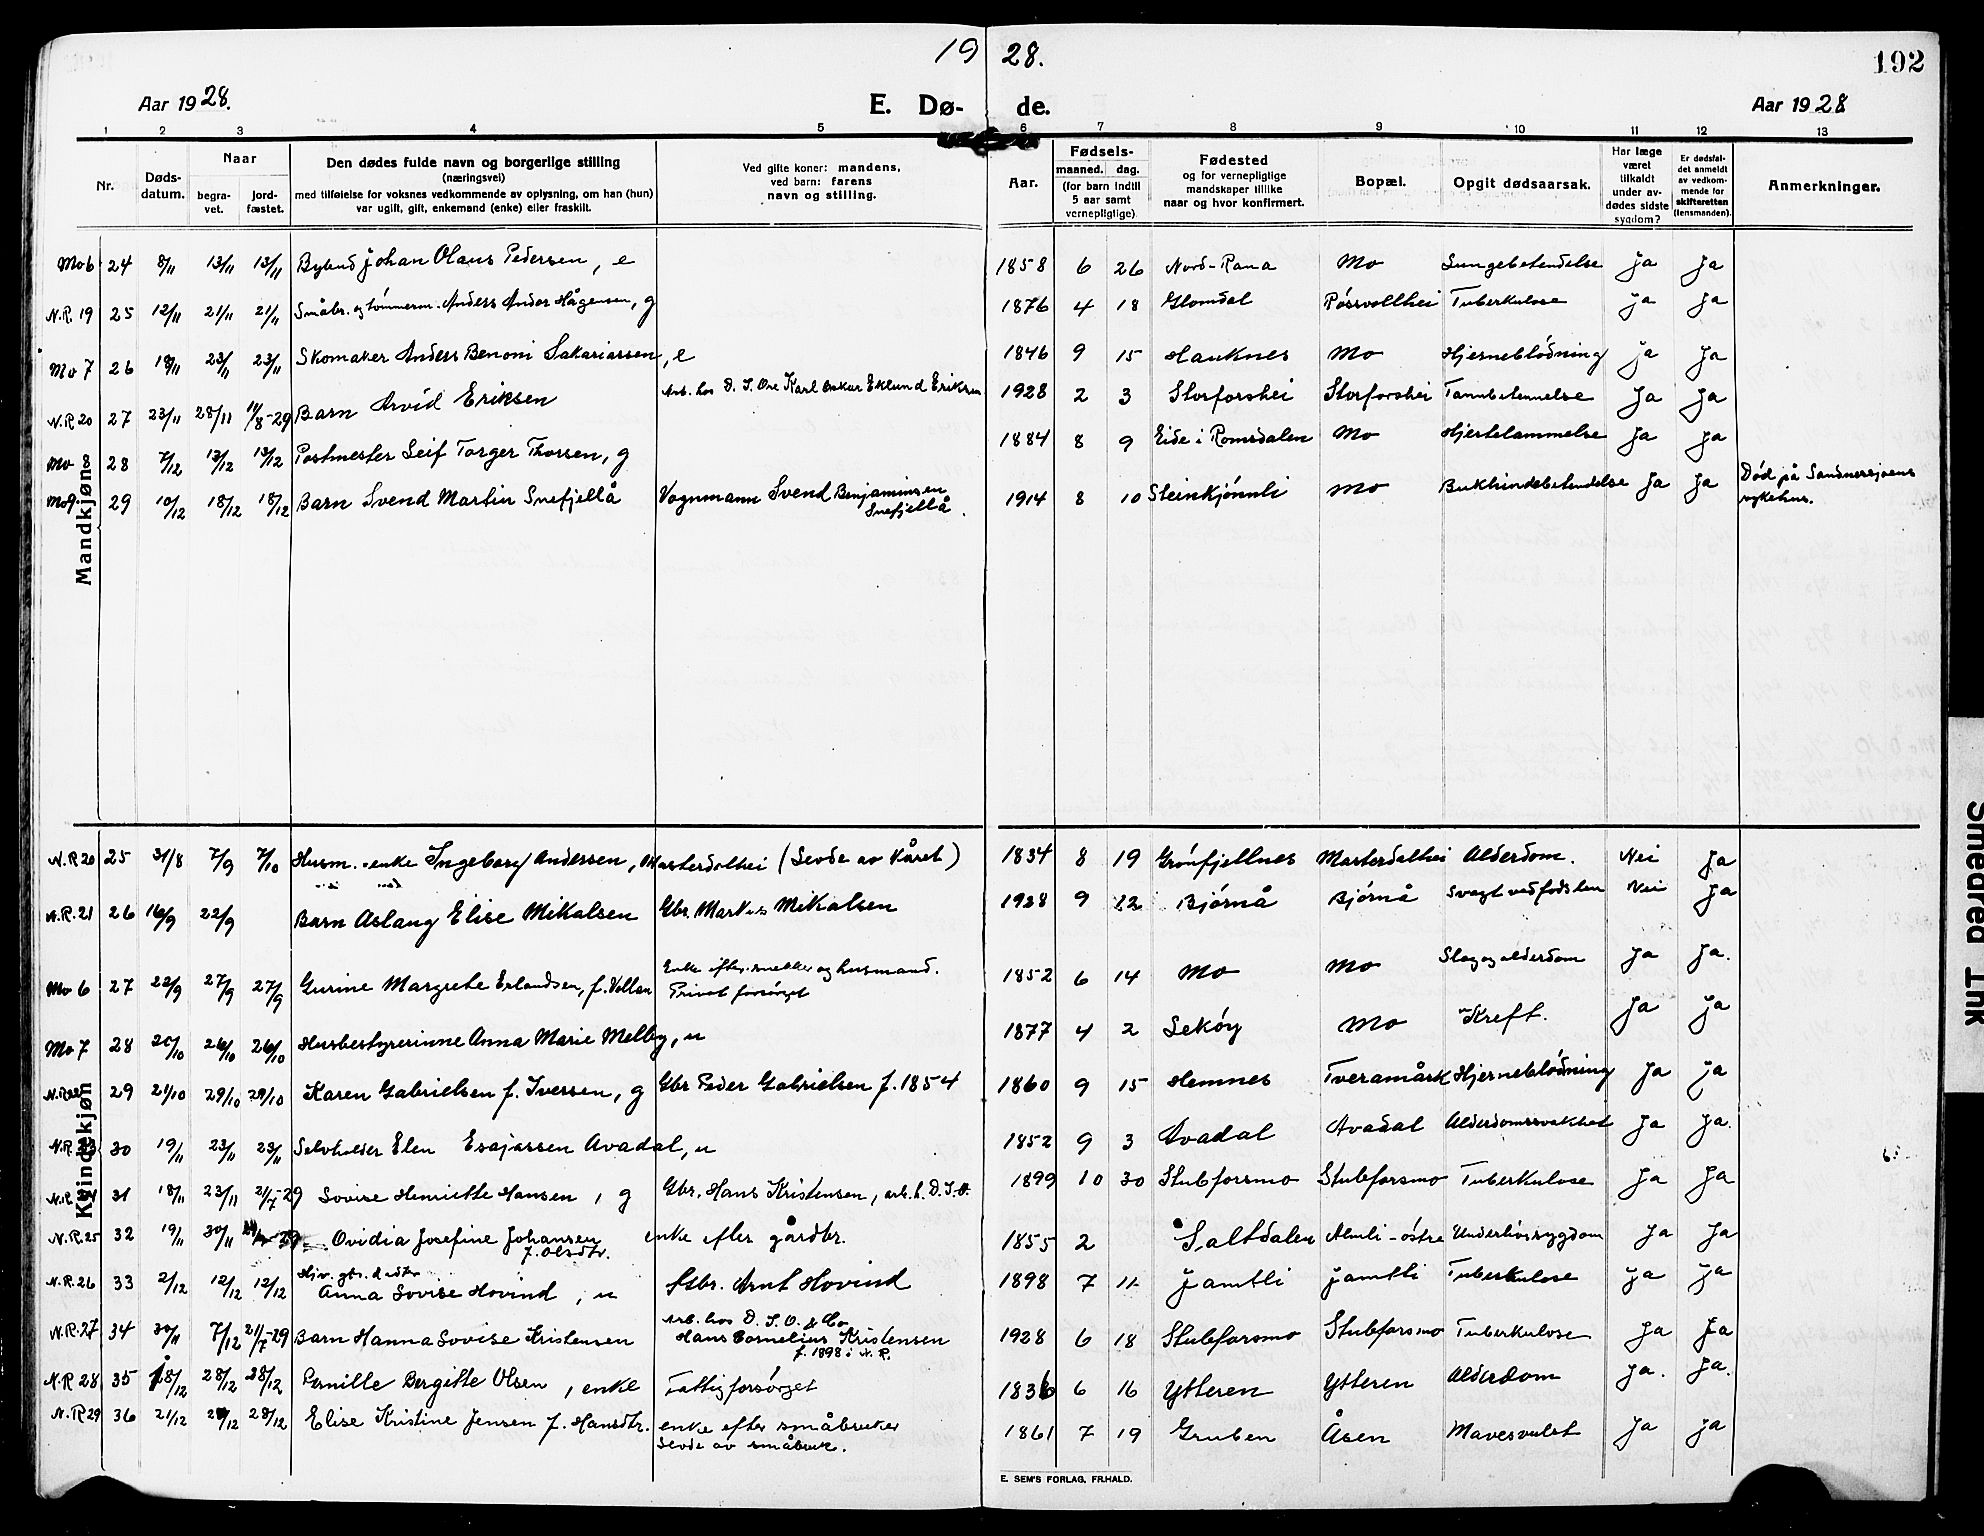 19 28.
192
Aar 1928.
E. Dø- de.
Aar 1928
1 2 3 4 5 6 7 8 9 10 11 12 13
Nr.
Døds-
datum.
Naar
begra-
vet.
jord-
fæstet.
Den dødes fulde navn og borgerlige stilling
(næringsvei)
med tilføielse for voksnes vedkommende av oplysning, om han (hun)
var ugift, gift, enkemand (enke) eller fraskilt.
Ved gifte koner: mandens,
ved barn: farens
navn og stilling.
Aar.
Fødsels-
maaned. dag.
(for barn indtil
5 aar samt
vernepligtige)
Fødested
og for vernepligtige
mandskaper tillike
naar og hvor konfirmert.
Bopæl.
Opgit dødsaarsak.
Har læge
været
tilkaldt
under av-
dødes sidste
sygdom?
Er dødsfal-
det anmeldt
av vedkom-
mende for
skifteretten
(lensmanden).
Anmerkninger.
Mandkjøn.
Mo 6 24 8/11 13/11 13/11 Bybud Johan Olaus Pedersen, e 1858 6 26 Nord-Rana Mo Lungebetendelse Ja Ja
N.R. 19 25 12/11 21/11 21/11 Småbr. og tømmerm. Anders Ander Hågensen, g 1876 4 18 Glomdal Røssvollhei Tuberkulose Ja Ja
Mo 7 26 18/11 23/11 23/11 Skomaker Anders Benoni Sakariassen, e 1846 9 15 Hauknes Mo Hjerneblödning Ja Ja
N.R. 20 27 23/11 28/11 11/8-29 Barn Arvid Eriksen Arb. hos D. I. Ore Karl Oskar Eklund Eriksen 1928 2 3 Storforshei Storforshei Tannbetennelse Ja Ja
Mo 8 28 7/12 13/12 13/12 Postmester Leif Torger Thorsen, g 1884 8 9 Eide i Romsdalen Mo Hjertelammelse Ja Ja
Mo 9 29 10/12 18/12 18/12 Barn Svend Martin Snefjellå Vognmann Svend Benjaminsen Snefjellå. 1914 8 10 Steinkjønnli Mo Bukhindebetendelse Ja Ja Død på Sandnessjøens
sykehus.
Kvindekjøn
N.R. 20 25 31/8 7/9 7/10 Husm.-enke Ingeborg Andersen, Masterdalhei (Levde av kåret) 1834 8 19 Grönfjellnes Masterdalhei Alderdom. Nei Ja
N.R. 21 26 16/9 22/9 Barn Aslaug Elise Mikalsen Gbr. Markus Mikalsen 1928 9 12 Bjørnå Bjørnå Svagt ved fødselen Nei Ja
Mo 6 27 22/9 27/9 27/9 Gurine Margrete Erlandsen, f. Vollan Enke efter snekker og husmand.
Privat forsørget 1852 6 14 Mo Mo Slag og alderdom Ja Ja.
Mo 7 28 20/10 26/10 26/10 Husbestyrerinne Anna Marie Melby, u 1877 4 2 Leköy Mo Kreft. Ja Ja
N.R. 22 29 21/10 29/10 29/10 Karen Gabrielsen f. Iversen, g Gbr Peder Gabrielsen f. 1854 1860 9 15 Hemnes Tveramårk Hjerneblödning Ja Ja
N.R. 23 30 19/11 23/11 23/11 Selvholder Elen Esajassen Avadal, u 1852 9 3 Avadal Avadal Alderdomssvakhet Ja Ja.
N.R. 24 31 18/11 23/11 21/7-29 Lovise Henriette Hansen, g Gbr. Hans Kristensen, arb. h. D.I.O. 1899 10 30 Stubforsmo Stubforsmo Tuberkulose Ja Ja
N.R. 25 32 19/11 30/11 Ovidia Josefine Johansen
f. Olsdtr. enke efter gårdbr. 1855 2 Saltdalen Almli-östre Underlivssygdom Ja Ja
N.R. 26 33 2/12 12/12 12/12 Hjv. gbr. dadtr
Anna Lovise Hovind, u Gbr. Arnt Hovind 1898 7 11 Jamtli Jamtli Tuberkulose Ja Ja
N.R. 27 34 30/11 7/12 21/7-29 Barn Hanna Lovise Kristensen Arb. hos D. I. O. & Co
Hans Cornelius Kristensen
f. 1898 i N. R. 1928 6 18 Stubforsmo Stubforsmo Tuberkulose Ja Ja
N.R 28 35 18/12 28/12 28/12 Pernille Bergitte Olsen, enke Fattigforsørget 1836 6 16 Ytteren Ytteren Alderdom Ja. Ja.
N.R 29 36 21/12 28/12 28/12 Elise Kristine Jensen f. Hansdtr. enke efter småbruker
Levde av småbruk. 1861 7 19 Gruben Åsen Mavesvulst Ja Ja
E. SEM'S FORLAG, FR.HALD.
Smeared Ink